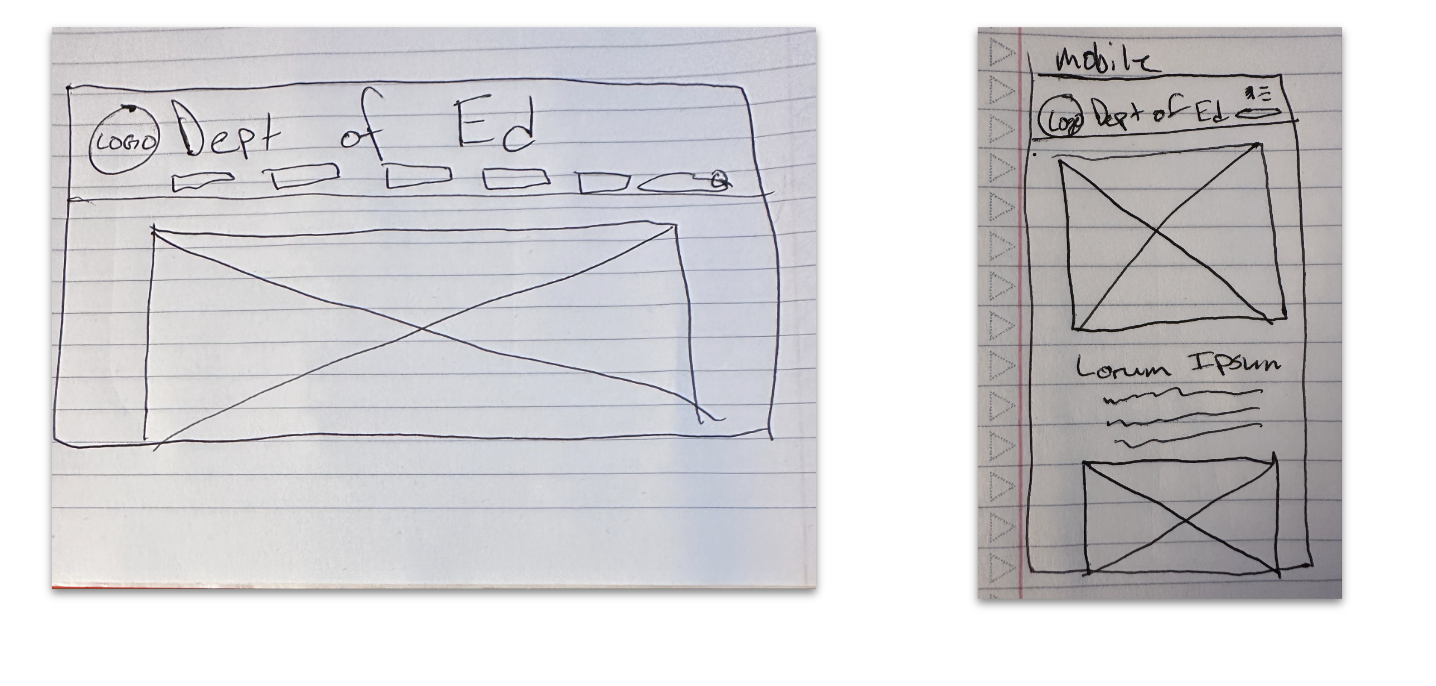 LOGO
Dept of Ed
mobile
Logo
Dept of Ed
Lorum Ipsum